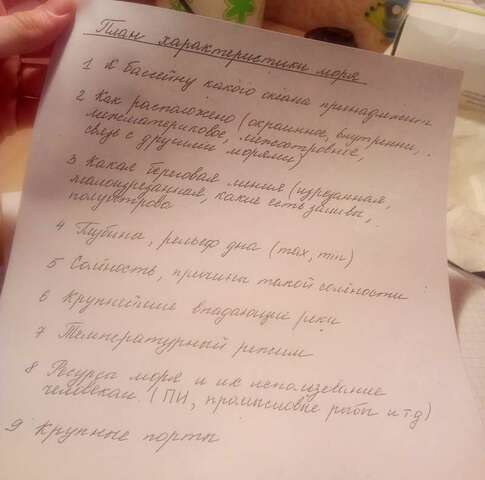 План характеристики моря
1 К бассейну какого океана принадлежит
2 Как расположено (окраинное, внутренни,
межматериковое, межостровное,
связь с другими морями)
3 Какая береговая линия (изрезанная,
малоизрезанная, какие есть заливы,
полуострова
4 Глубина, рельеф дна (max, min)
5 Солёность, причины такой солёности
6 Крупнейшие впадающие реки
7 Температурный режим
8 Ресурсы моря и их использование
человеком. (ПИ, промысловые рыбы и т д)
9 Крупные порты